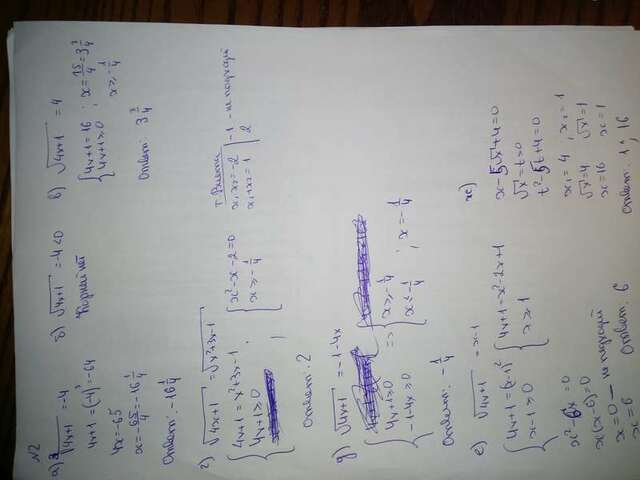 N2
а) ∛4x+1 = -4
4x+1 = (-4)³ = -64
4x = -65
x = -65/4 = -16 1/4
Ответ: -16 1/4
б) √4x+1 = -4 < 0
Корней нет
в) √4x+1 = 4
{4x+1 = 16
4x+1 ≥ 0 ; x = 15/4 = 3 3/4
x ≥ -1/4
Ответ: 3 3/4
г) √4x+1 = √x²+3x-1
{4x+1 = x²+3x-1
4x+1 ≥ 0 ;
{x²-x-2=0
x ≥ -1/4
т. Виета
x₁·x₂ = -2
x₁+x₂ = 1
-1 - не подходит
2
Ответ: 2
д) √4x+1 = -1-4x
{4x+1 ≥ 0
-1-4x ≥ 0
=> {x ≥ -1/4
x ≤ -1/4 ; x = -1/4
Ответ: -1/4
е) √4x+1 = x-1
{4x+1 = (x-1)²
x-1 ≥ 0
{4x+1 = x²-2x+1
x ≥ 1
x²-6x = 0
x(x-6) = 0
x = 0 - не подходит
x = 6
Ответ: 6
ж)
x-5√x+4=0
√x = t ≥ 0
t²-5t+4=0
x₁ = 4, x₂ = 1
√x = 4 √x = 1
x = 16 x = 1
Ответ: 1; 16